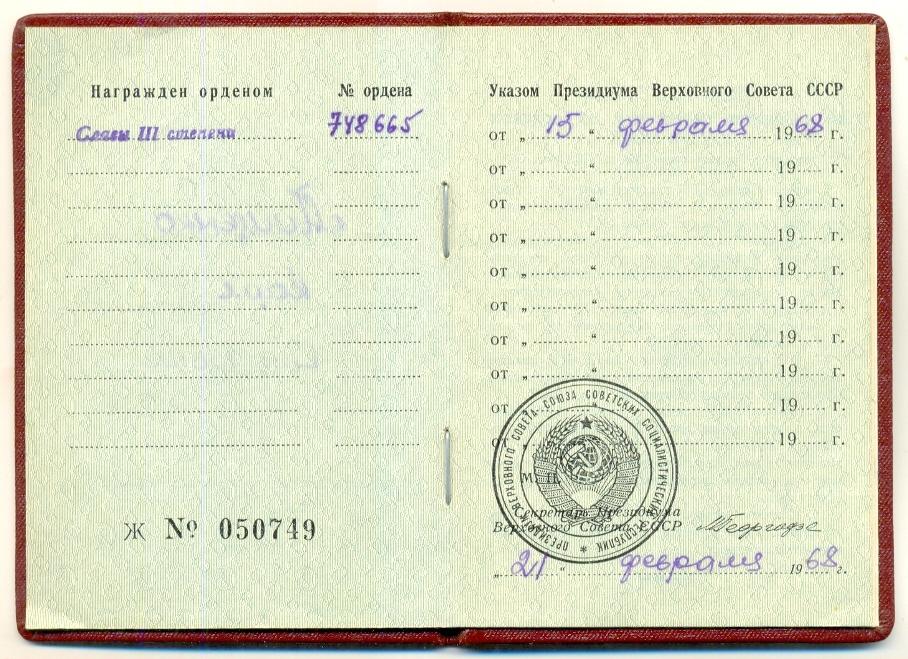 Награжден орденом № ордена
Славы III степени 748665
Ж № 050749
Указом Президиума Верховного Совета СССР
от „ 15 “ февраля 1968 г.
от „ “ 19 г.
от „ “ 19 г.
от „ “ 19 г.
от „ “ 19 г.
от „ “ 19 г.
от „ “ 19 г.
от „ “ 19 г.
от „ “ 19 г.
от „ “ 19 г.
М. П.
ПРЕЗИДИУМ ВЕРХОВНОГО СОВЕТА СОЮЗА СОВЕТСКИХ СОЦИАЛИСТИЧЕСКИХ РЕСПУБЛИК
Секретарь Президиума
Верховного Совета СССР МГеоргадзе
„ 21 “ февраля 1968 г.